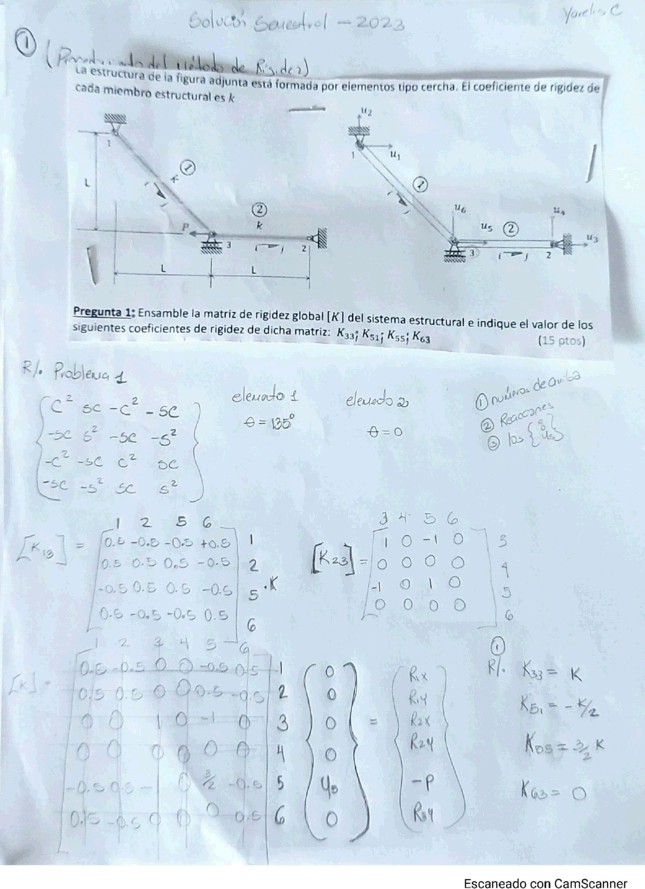 Solución Semestral - 2023
Yarelis C
① (Procedimiento del Método de Rigidez)
La estructura de la figura adjunta está formada por elementos tipo cercha. El coeficiente de rigidez de
cada miembro estructural es k
1
L
①
k
②
k
P
3
2
L
L
u2
1
u1
①
u6
u5
②
u4
u3
3
2
Pregunta 1: Ensamble la matriz de rigidez global [K] del sistema estructural e indique el valor de los
siguientes coeficientes de rigidez de dicha matriz: K33; K51; K55; K63
(15 ptos)
R/. Problema 1
C² SC -C² -SC
-SC S² -SC -S²
-C² -SC C² SC
-SC -S² SC S²
elemento 1
θ = 135°
elemento 2
θ = 0
① números de arriba
② Reacciones
③ los
1 2 5 6
[K13] =
0.5 -0.5 -0.5 +0.5 1
0.5 0.5 0.5 -0.5 2
-0.5 0.5 0.5 -0.5 5 · K
0.5 -0.5 -0.5 0.5 6
3 4 5 6
[K23] =
1 0 -1 0 3
0 0 0 0 4
-1 0 1 0 5
0 0 0 0 6
1 2 3 4 5 6
[K] =
0.5 -0.5 0 0 -0.5 0.5 1
0.5 0.5 0 0 0.5 -0.5 2
0 0 1 0 -1 0 3
0 0 0 0 0 0 4
-0.5 0.5 -1 0 3/2 -0.5 5
0.5 -0.5 0 0 0 0.5 6
0
0
0
0
U5
0
=
R1x
R1y
R2x
R2y
-P
R3y
①
R/. K33 = K
K51 = -K/2
K55 = 3/2 K
K63 = 0
Escaneado con CamScanner